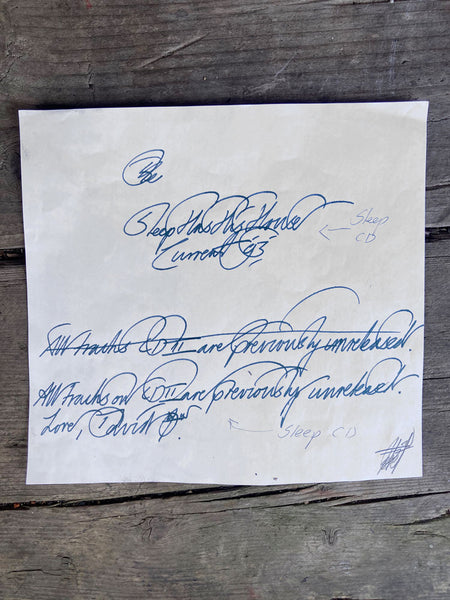 Sleep Has His House
Current 93
← Sleep CD
All tracks CD II are previously unreleased.
All Tracks on CD II are previously unreleased.
Love, David
← Sleep CD